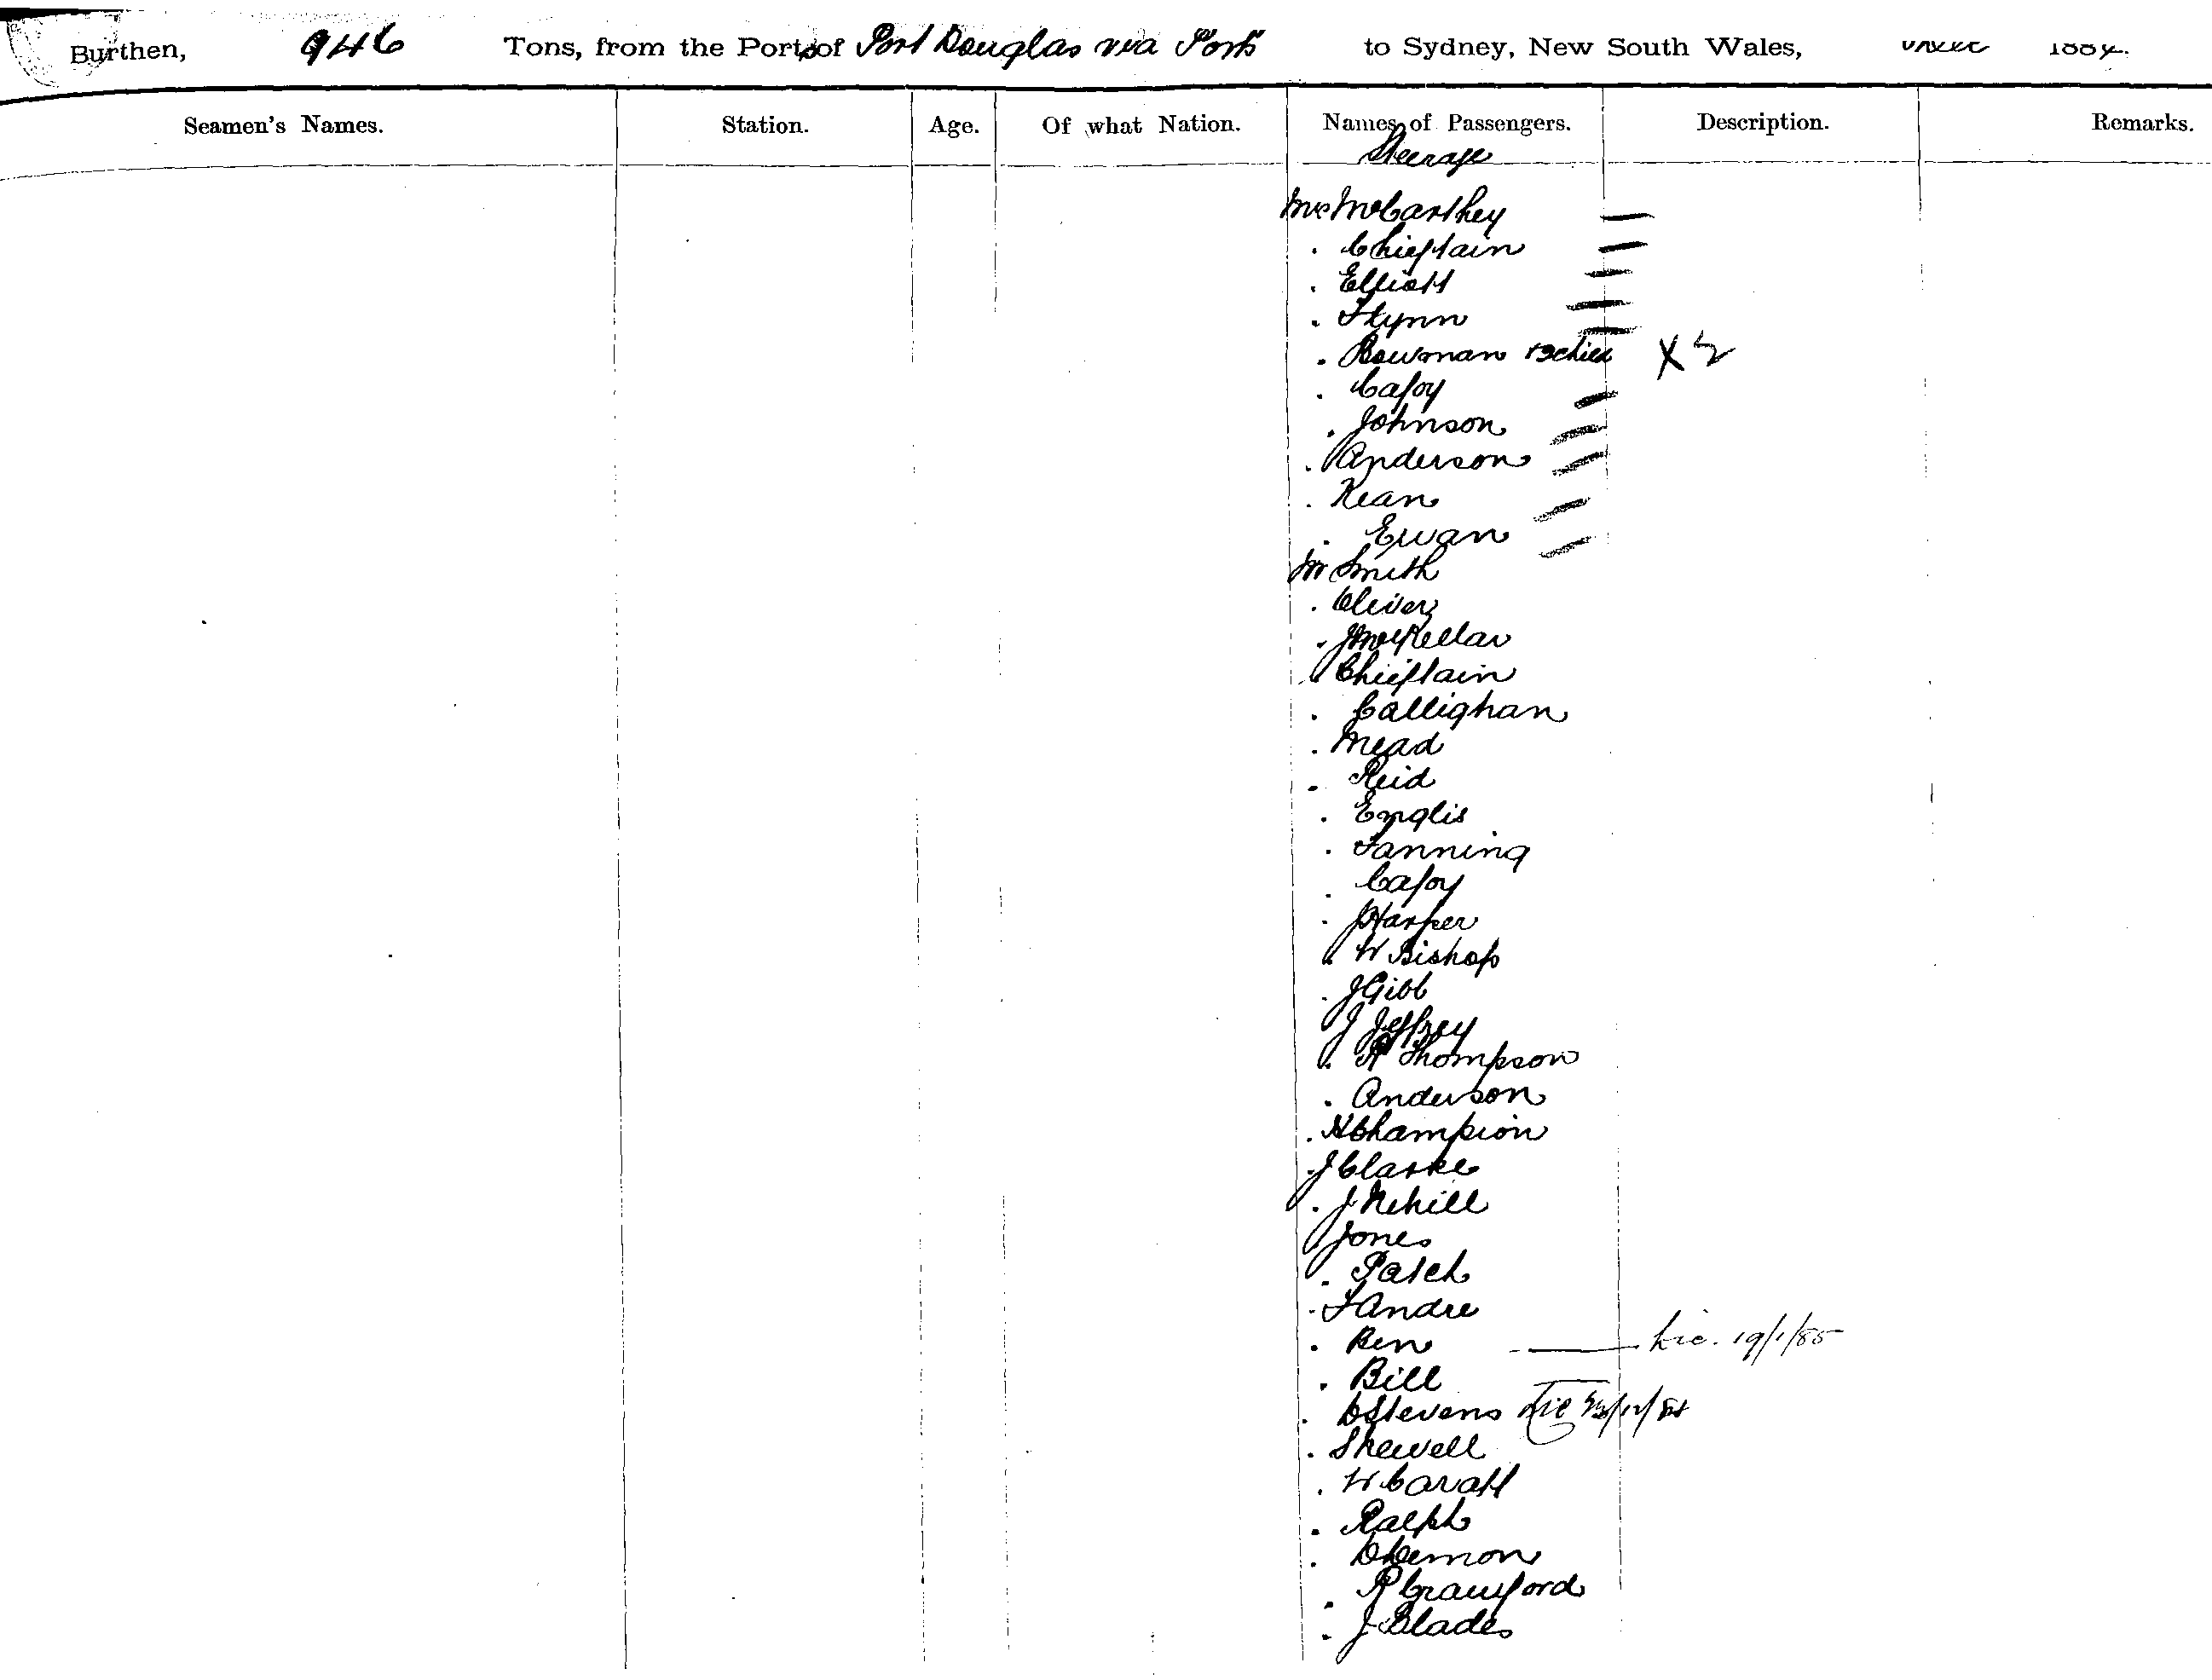 Burthen, 946 Tons, from the Port of Port Douglas via Ports to Sydney, New South Wales, 1884.
Seamen's Names. Station. Age. Of what Nation. Names of Passengers. Description. Remarks.
Steerage
Mrs McCarthey
. Chieftain
. Elliott
. Flynn
. Bowman & 2 child X 2
. Cafoy
. Johnson
. Anderson
. Kean
. Ewan
Mr Smith
. Oliver
. J McKellar
. Chieftain
. Callighan
. Mead
. Reid
. Englis
. Fanning
. Cafoy
. J Harper
. W Bishop
. J Gibb
J Jeffrey
. R Thompson
. Anderson
. H Champion
. J Clarke
. J Nehill
Jones
. Patch
. F Andre
. Ben Lic. 19/1/85
. Bill
. C Stevens Lic /12/84
. Shewell
. W Caratt
. Ralph
. D Demon
. R Crawford
. J Blades